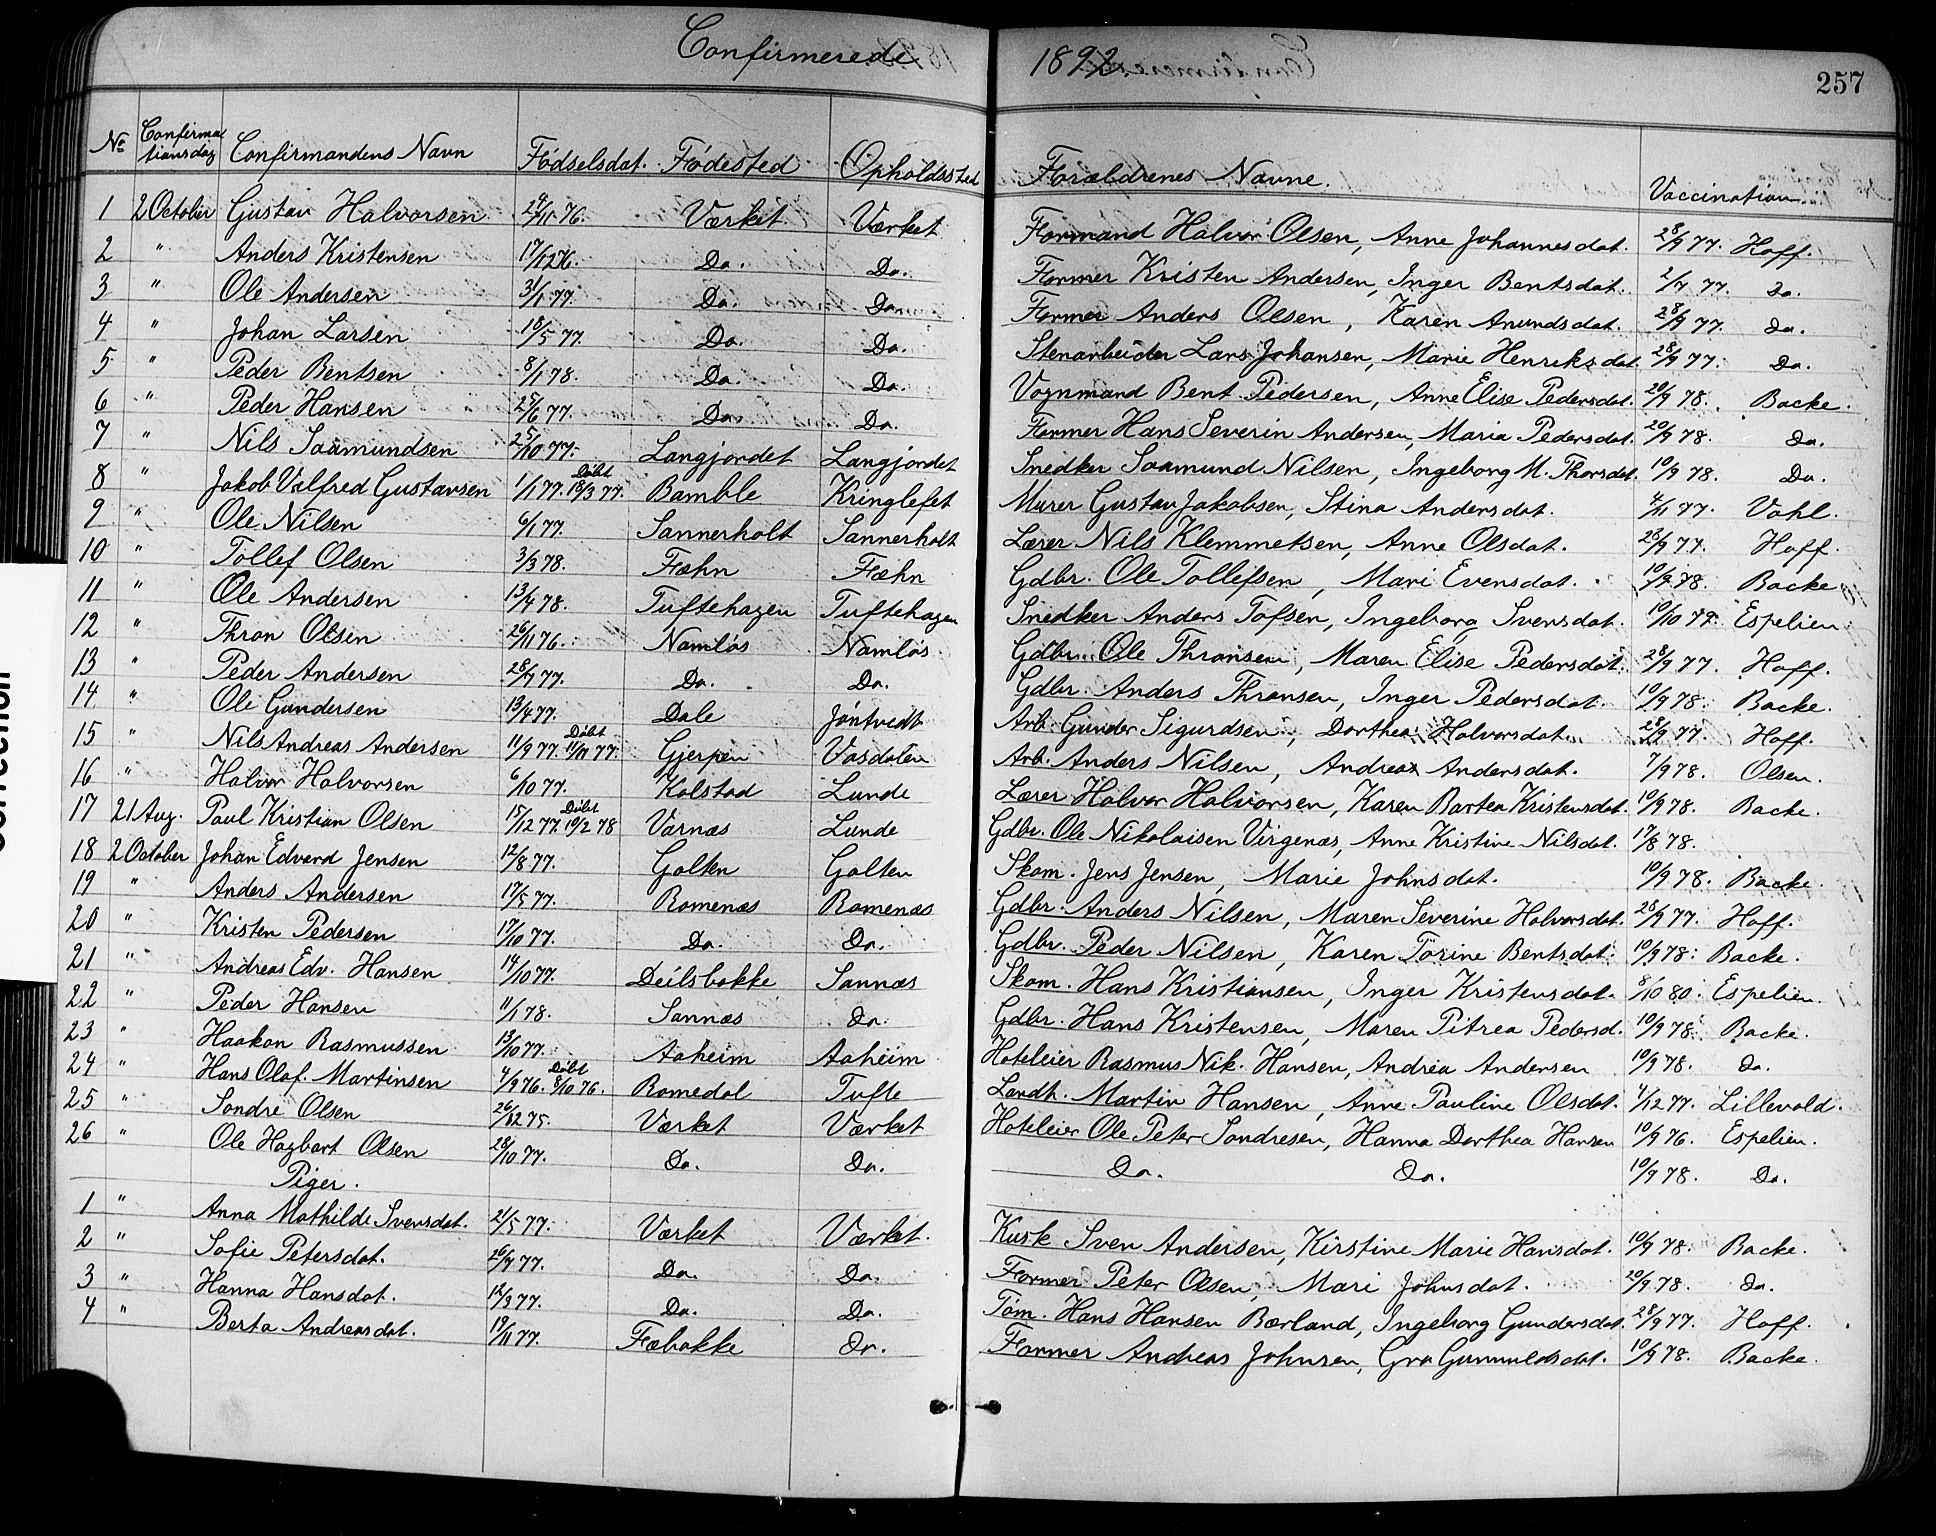 Confirmerede 1892
257
No Confirmationsdag Confirmandens Navn Fødselsdat. Fødested Opholdssted Forældrenes Navne. Vaccination.
1 2 October Gustav Halvorsen 29/11 76. Værket Værket Formand Halvor Olsen, Anne Johannesdat. 28/9 77. Hoff.
2 " Anders Kristensen 17/12 76. Do. Do. Former Kristen Andersen, Inger Bentsdat. 2/7 77. Do.
3 " Ole Andersen 31/1 77. Do. Do. Former Anders Olsen, Karen Anundsdat. 28/9 77. Do.
4 " Johan Larsen 18/5 77. Do. Do. Stenarbeider Lars Johansen, Marie Henriksdat. 28/9 77. Do.
5 " Peder Bentsen 8/1 78. Do. Do. Vognmand Bent Pedersen, Anne Elise Pedersdat. 20/9 78. Backe.
6 " Peder Hansen 25/6 77. Do. Do. Former Hans Severin Andersen, Maria Pedersdat. 20/9 78. Do.
7 " Nils Saamundsen 25/10 77. Langjordet Langjordet Snedker Saamund Nilsen, Ingeborg M. Thorsdat. 10/9 78. Do.
8 " Jakob Valfred Gustavsen 1/1 77. Døbt 18/3 77. Bamble Kringlefet Murer Gustav Jakobsen, Stina Andersdat. 4/11 77. Vahl.
9 " Ole Nilsen 6/1 77. Sannerholt Sannerholt Lærer Nils Klemmetsen, Anne Olsdat. 28/9 77. Hoff.
10 " Tollef Olsen 3/3 78. Fæhn Fæhn Gdbr. Ole Tollefsen, Mari Evensdat. 10/9 78. Backe
11 " Ole Andersen 13/4 78. Tuftehagen Tuftehagen Snedker Anders Tofsen, Ingeborg Svensdat. 10/10 77. Espelien.
12 " Thron Olsen 26/11 76. Namløs Namløs. Gdbr. Ole Thronsen, Maren Elise Pedersdat. 28/9 77. Hoff.
13 " Peder Andersen 28/7 77. Do. Do. Gdbr. Anders Thronsen, Inger Pedersdat. 10/9 78. Backe.
14 " Ole Gundersen 13/4 77. Dale Jøntvedt Arb. Gunder Sigurdsen, Dorthea Halvorsdat. 28/9 77. Hoff.
15 " Nils Andreas Andersen 11/9 77. Døbt 11/11 77. Gjerpen Vasdalen Arb. Anders Nilsen, Andrea Andersdat. 7/9 78. Olsen.
16 " Halvor Halvorsen 6/10 77. Kolstad Lunde Lærer Halvor Halvorsen, Karen Bartea Kristensdat. 10/9 78. Backe.
17 21 Aug. Paul Kristian Olsen 15/12 77. Døbt 10/2 78 Varnæs Lunde Gdbr. Ole Nikolaisen Virgenæs, Anne Kristine Nilsdat. 17/8 78.
18 2 October Johan Edvard Jensen 12/8 77. Galten Galten Skom. Jens Jensen, Marie Johnsdat. 10/9 78. Backe.
19 " Anders Andersen 17/5 77. Romenæs Romenæs Gdbr. Anders Nilsen, Maren Severine Halvorsdat. 28/9 77. Hoff.
20 " Kristen Pedersen 17/10 77. Do. Do. Gdbr. Peder Nilsen, Karen Torine Bentsdat. 10/9 78. Backe.
21 " Andreas Edv. Hansen 14/10 77. Deilsbakke Sannæs Skom. Hans Kristiansen, Inger Kristensdat. 8/10 80. Espelien.
22 " Peder Hansen 11/1 78. Sannæs Do. Gdbr. Hans Kristensen, Maren Pitrea Pedersd. 10/9 78. Backe.
23 " Haakon Rasmussen 13/10 77. Aaheim Aaheim Hoteleier Rasmus Nik. Hansen, Andrea Andersen 10/9 78. Do.
24 " Hans Olaf. Martinsen 4/9 76. Døbt 8/10 76. Romedal Tufte Landh. Martin Hansen, Anne Pauline Olsdat. 1/12 77. Lillevold.
25 " Sondre Olsen 26/12 75. Værket Værket Hoteleier Ole Peter Sondresen, Hanna Dorthea Hansen 10/9 76. Espelien.
26 " Ole Hagbart Olsen 28/10 77. Do. Do. Do. Do. 10/9 78. Do.
Piger.
1 " Anna Mathilde Svensdat. 21/5 77. Værket Værket. Kusk Sven Andersen, Kirstine Marie Hansdat. 10/9 78. Backe.
2 " Sofie Petersdat. 26/7 77. Do. Do. Former Peter Olsen, Mari Johnsdat. 20/9 78. Do.
3 " Hanna Hansdat. 12/3 77. Do. Do. Tøm. Hans Hansen Bærland, Ingeborg Gundersdat. 28/9 77. Hoff.
4 " Berta Andreasdat. 19/11 77. Fæbakke Do. Former Andreas Johnsen, Gro Gunnuldsdat. 10/9 78. Backe.